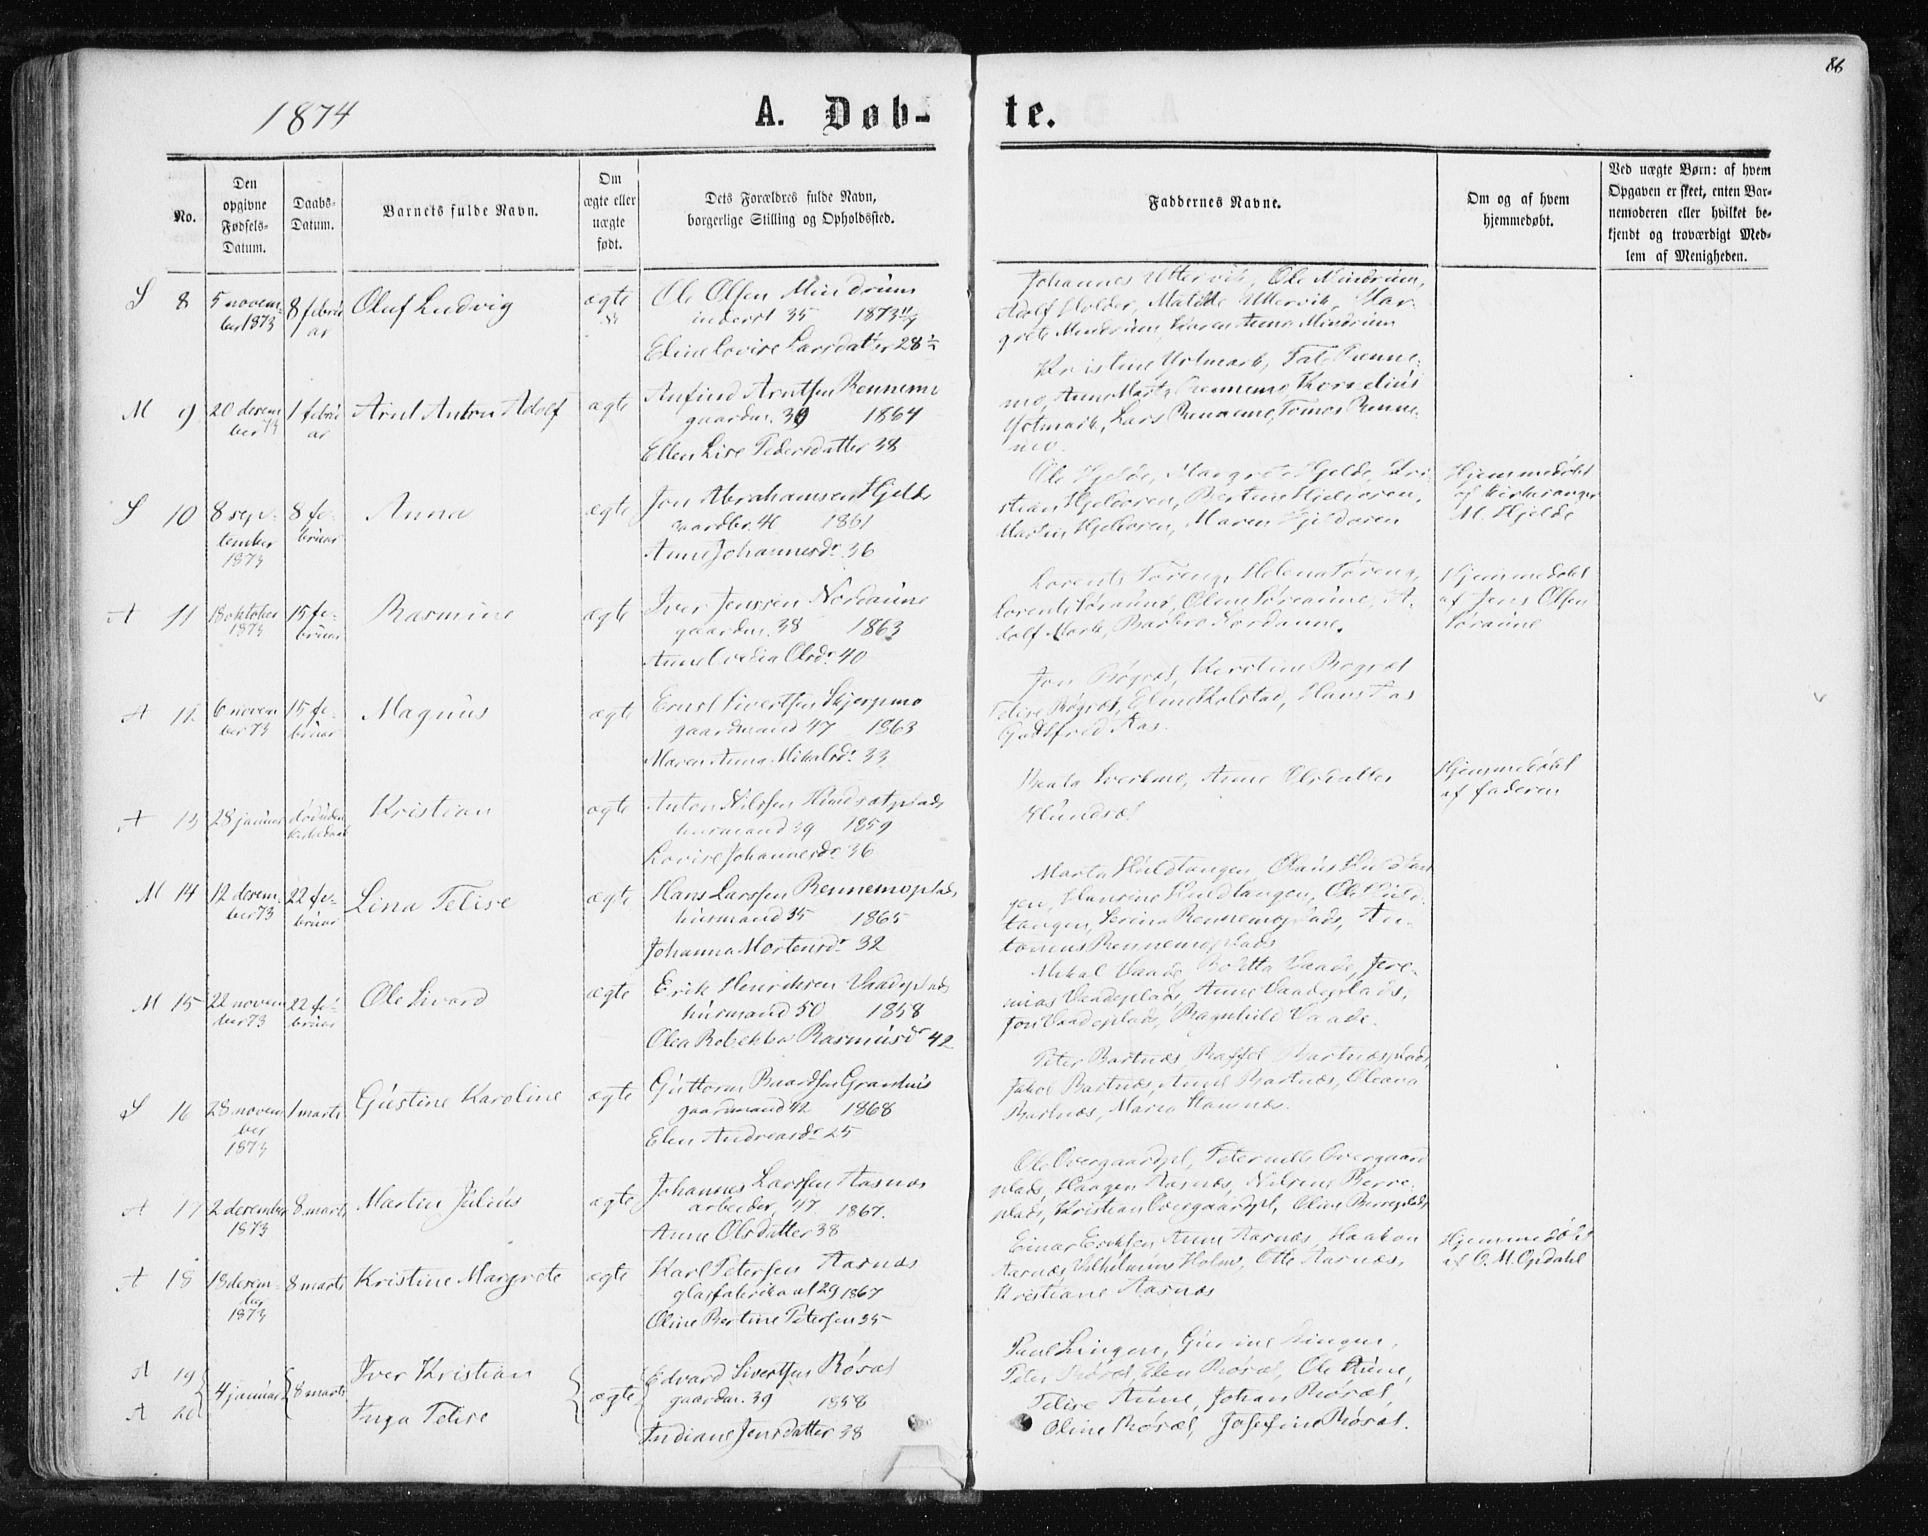 86
1874 A. Døb- te.
No.
Den opgivne Fødsels-Datum.
Daabs-Datum.
Barnets fulde Navn.
Om ægte eller uægte født.
Dets Forældres fulde Navn, borgerlige Stilling og Opholdssted.
Faddernes Navne.
Om og af hvem hjemmedøbt.
Ved uægte Børn: af hvem Opgaven er skeet, enten Barnemoderen eller hvilket bekjendt og troværdigt Medlem af Menigheden.
S 8 5 novem- 8 febru Oluf Ludvig ægte Ole Olsen Mindrum
ber 1873 ar inderst 35 1873
Eline Lovise Larsdatter 28
Johannes Uttervik, Ole Mindrum,
Adolf Holder, Matilde Uttervik, Mar-
grete Mindrum, Karen Anna Mindrum
M 9 20 desem 1 febru Arnt Anton Adolf ægte Anfind Arntsen Rennemo
ber 73 ar gaardm. 39 1864
Ellen Lise Pedersdatter 38
Kristine Ystmark, Renne-
mo, Anne Marta Rennemo, Kornelius
Ystmark, Lars Rennemo, Tomas Renne-
mo.
S 10 8 sep- 8 fe- Anna ægte Jon Abrahamsen Hjelde
tember bruar gaardbr. 40 1861
1873 Anne Johannesdr 36
Ole Hjelde, Margrete Hjelde, Kri-
stian Hjeldoren, Bertine Hjeldoren,
Martin Hjeldoren, Maren Hjeldoren
Hjemmedøbt
af kirkesanger
M. Hjelde
A 11 18 oktober 15 fe- Rasmine ægte Iver Jenssen Nordaune
1873 bruar gaardm. 38 1863
Anne Olsdr 40
Lorents Føreng, Helena Føreng,
Lorents Søraune, Oline Søraune, A-
dolf Mork, Barbro Nordaune.
Hjemmedøbt
af Jens Olsen
Søraune
A 12 6 novem 15 fe- Magnus ægte Ernst Sivertsen Skjerpmo
ber 73 bruar gaardmand 47 1863
Maren Anna Mikalsdr 33
Jon Røgræs, Kerstine Røgræs
Telise Røgræs, Eline Holstad, Hans Aas
Godtfred Aas.
A 13 28 januar død uden Kristian ægte Anton Nilssen Hundsætplads
husmand 39 1859
Lovise Johannesdr 36
Beata Anne Olsdatter
Hundsæt
Hjemmedøbt
af faderen
M 14 12 desem- 22 fe- Lina Telise ægte Hans Larssen Rennemoplads
ber 73 bruar husmand 35 1865
Johanna Mortensdr 32
Marta Huldtangen, Olaus Huldtan
gen, Hansine Huldtangen, Ole Huld-
tangen, Serina Rennemoplads, An-
tonius Rennemoplads
M 15 22 novem 22 fe- Ole Sivard ægte Erik Henriksen Vaadeplads
ber 73 bruar husmand 50 1858
Olea Rebekka Rasmusdr 42
Mikal Vaade, Boletta Vaade, Jere-
mias Vaadeplads, Anne Vaadeplads,
Jon Vaadeplads, Ragnhild Vaade.
S 16 28 novem 1 marts Gustine Karoline ægte Guttorm Baardsen Grandaus
ber gaardmand 42 1868
1873 Elen Andreasdr 25
Peter Bartnæs, Raffel Bartnæsplads,
Jakob Bartnæs, Anne Bartnæs, Oleana
Bartnæs, Maria Hamnæs.
A 17 2 desember 8 marts Martin Julius ægte Johannes Larssen Aasnæs
1873 arbeider, 47 1867.
Anne Olsdatter 38
Ole Overgaardpl, Peternelle Overgaard
plads, Haagen Aasnæs, Nilsine Berre-
plads, Kristian Overgaardpl, Oline Berreplads
A 18 18 desem- 8 marts Kristine Margrete ægte Karl Petersen Aasnæs
ber glasfabrikant 29 1867
1873 Oline Bertine Petersen 35
Einar Eriksen, Anne Aasnæs, Haakon
Aasnæs, Vilhelmine Holm, Otte Aasnæs,
Kristiane Aasnæs
Hjemmedøbt
af O. M. Opdahl
A 19 4 januar 8 marts Iver Kristian ægte Edvard Sivertsen Røsæt
A 20 Inga Telise gaardm. 39 1858
Indiane Jensdatter 38
Paul Lingen, Gurine Lingen,
Peter Røsæt, Elen Røsæt, Ole Aune,
Telise Aune, Johan Røsæt,
Oline Røsæt, Josefine Røsæt.